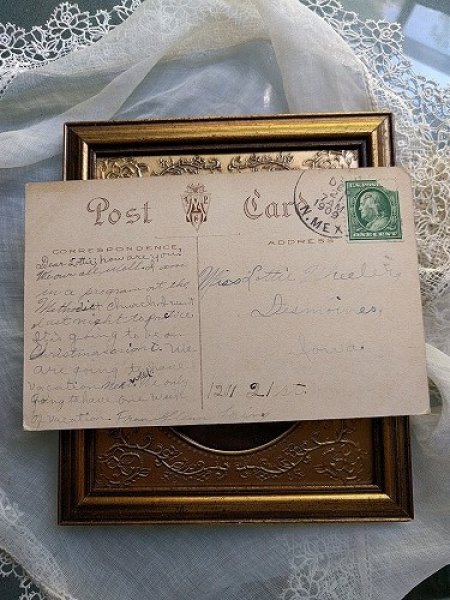 Post Card
CORRESPONDENCE
ADDRESS
DEC
1 AM
1909
N. MEX.
ONE CENT
Dear Lottie, how are you?
We are all well. I am
in a program at the
Methodist Church. I went
last night to practice
It is going to be on
Christmas night. We
are going to have
vacation next week. We only
going to have one week
of vacation. From
Miss Lottie
Desmoines,
Iowa.
1211 21 st.